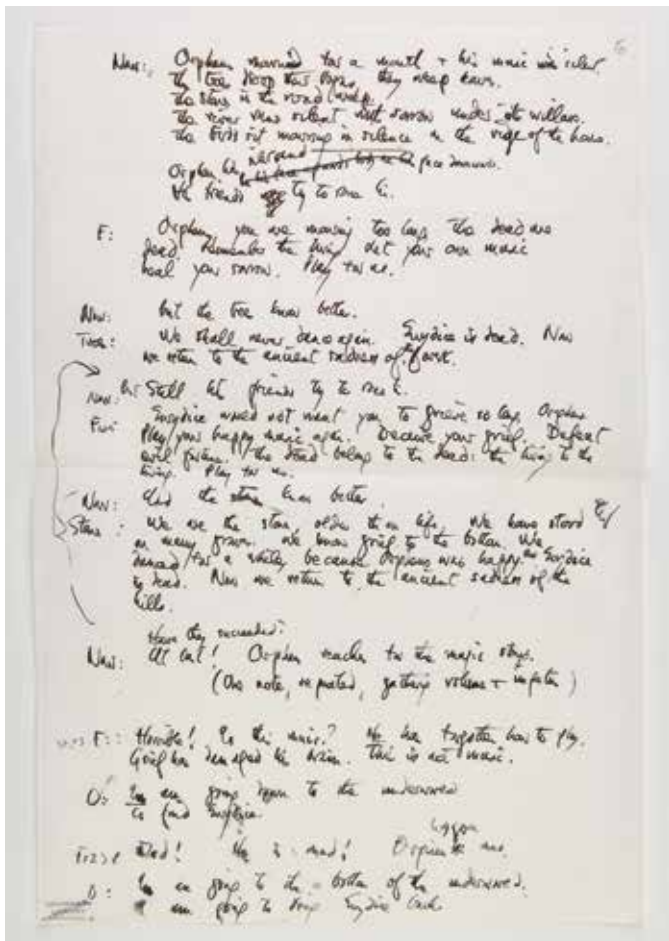 6
Narr: Orpheus mourned for a month & his music was silent.
The trees droop their boughs, they weep leaves.
The stones in the road
The river runs silent with sorrow under its willows.
The birds sit mourning in silence on the ridge of the house.
Orpheus lies face downward.
His friends try to rouse him.
F: Orpheus, you are mourning too long. The dead are
dead. Remember the living. Let your own music
heal your sorrow. Play for us.
Narr: But the trees know better.
Trees: We shall never dance again. Eurydice is dead. Now
we return to the ancient sadness of the forest.
Narr: Still his friends try to rouse him.
Eurydice would not want you to grieve so long Orpheus
Play your happy music again. Deceive your grief. Defeat
evil fortune. The dead belong to the dead: the living to the
living. Play for us.
Narr: And the stones know better.
Stones: We are the stones, older than life. We have stood by
many graves. We know grief to the bottom. We
danced for a while because Orpheus was happy. Eurydice
is dead. Now we return to the ancient sadness of the
hills.
Have they succeeded?
Narr: At last! Orpheus reaches for the magic strings.
(One note, repeated, gathering volume + impetus)
F: Horrible! Is this music? He has forgotten how to play.
Grief has damaged his brain. This is not music.
O: I am going down to the underworld
to find Eurydice
Mad! He is mad! Orpheus is mad.
O: I am going to the bottom of the underworld.
I am going to bring Eurydice back.